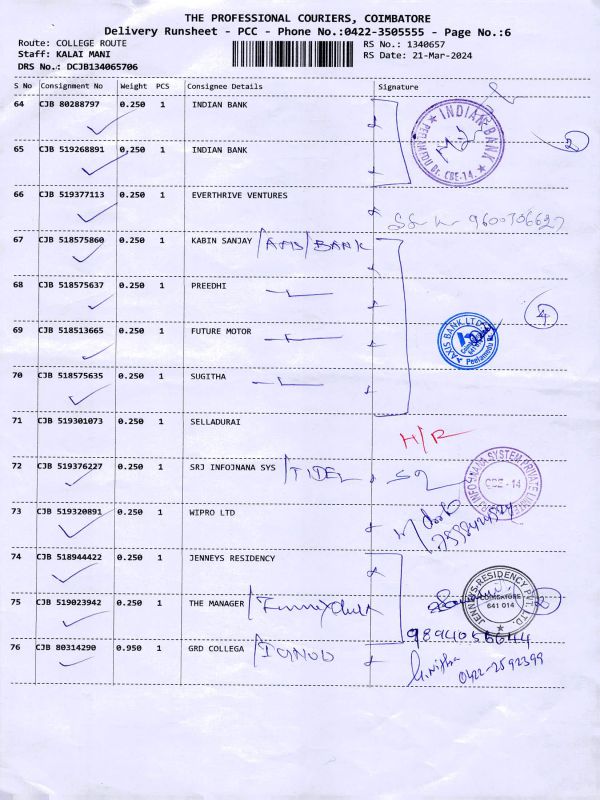 THE PROFESSIONAL COURIERS, COIMBATORE
Delivery Runsheet - PCC - Phone No.:0422-3505555 - Page No.:6
Route: COLLEGE ROUTE
RS No.: 1340657
Staff: KALAI MANI
RS Date: 21-Mar-2024
DRS No.: DCJB134065706
S No Consignment No Weight PCS Consignee Details Signature
64 CJB 80288797 0.250 1 INDIAN BANK
INDIAN BANK
CBE-14.
2
65 CJB 519268891 0,250 1 INDIAN BANK
66 CJB 519377113 0.250 1 EVERTHRIVE VENTURES
67 CJB 518575860 0.250 1 KABIN SANJAY /AXIS/BANK
68 CJB 518575637 0.250 1 PREEDHI
4
69 CJB 518513665 0.250 1 FUTURE MOTOR
AXIS BANK LTD
70 CJB 518575635 0.250 1 SUGITHA
71 CJB 519301073 0.250 1 SELLADURAI
H/R
72 CJB 519376227 0.250 1 SRJ INFOJNANA SYS /TIDEL
SYSTEM PRIVATE
CBE - 14
73 CJB 519320891 0.250 1 WIPRO LTD
74 CJB 518944422 0.250 1 JENNEYS RESIDENCY
JENNEYS RESIDENCY PVT. LTD.
COIMBATORE
641 014
2
75 CJB 519023942 0.250 1 THE MANAGER
76 CJB 80314290 0.950 1 GRD COLLEGA
0422-2592399